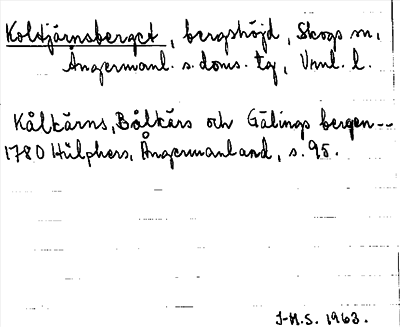 Koltjärnsberget, bergshöjd, Skogs sn,
Ångermanl. s. doms. tg, Vnnl. l.
Kålkärns, Bålkärs och Gälings bergen--
1780 Hülphers, Ångermanland, s. 95.
J-M.S. 1963.